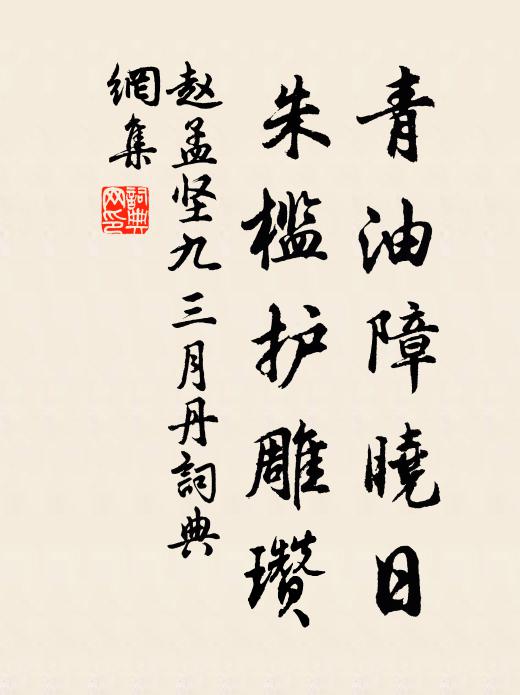 青油障曉日
朱槛护雕瓒
赵孟坚九三月丹詞典
網集
詞典
网印